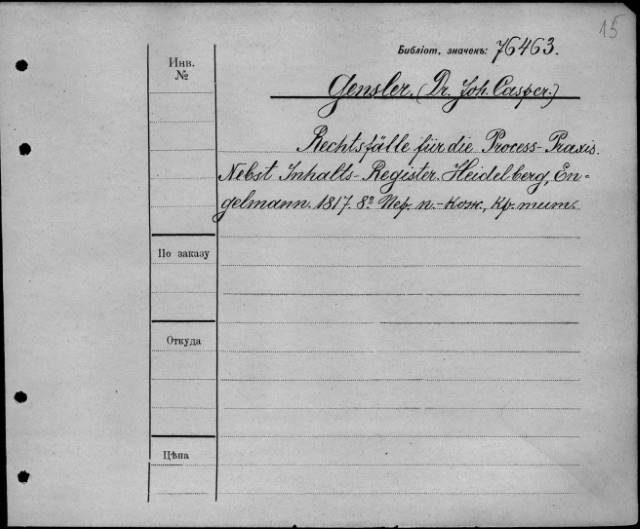 15
Библіот. значекъ: 76463.
Инв.
№
Gensler. (Dr. Joh. Casper.)
Rechtsfälle für die Process-Praxis.
Nebst Inhalts-Register. Heidelberg, En-
gelmann. 1817. 8º Пер. п.-кож., кр. тит.
По заказу
Откуда
Цѣна